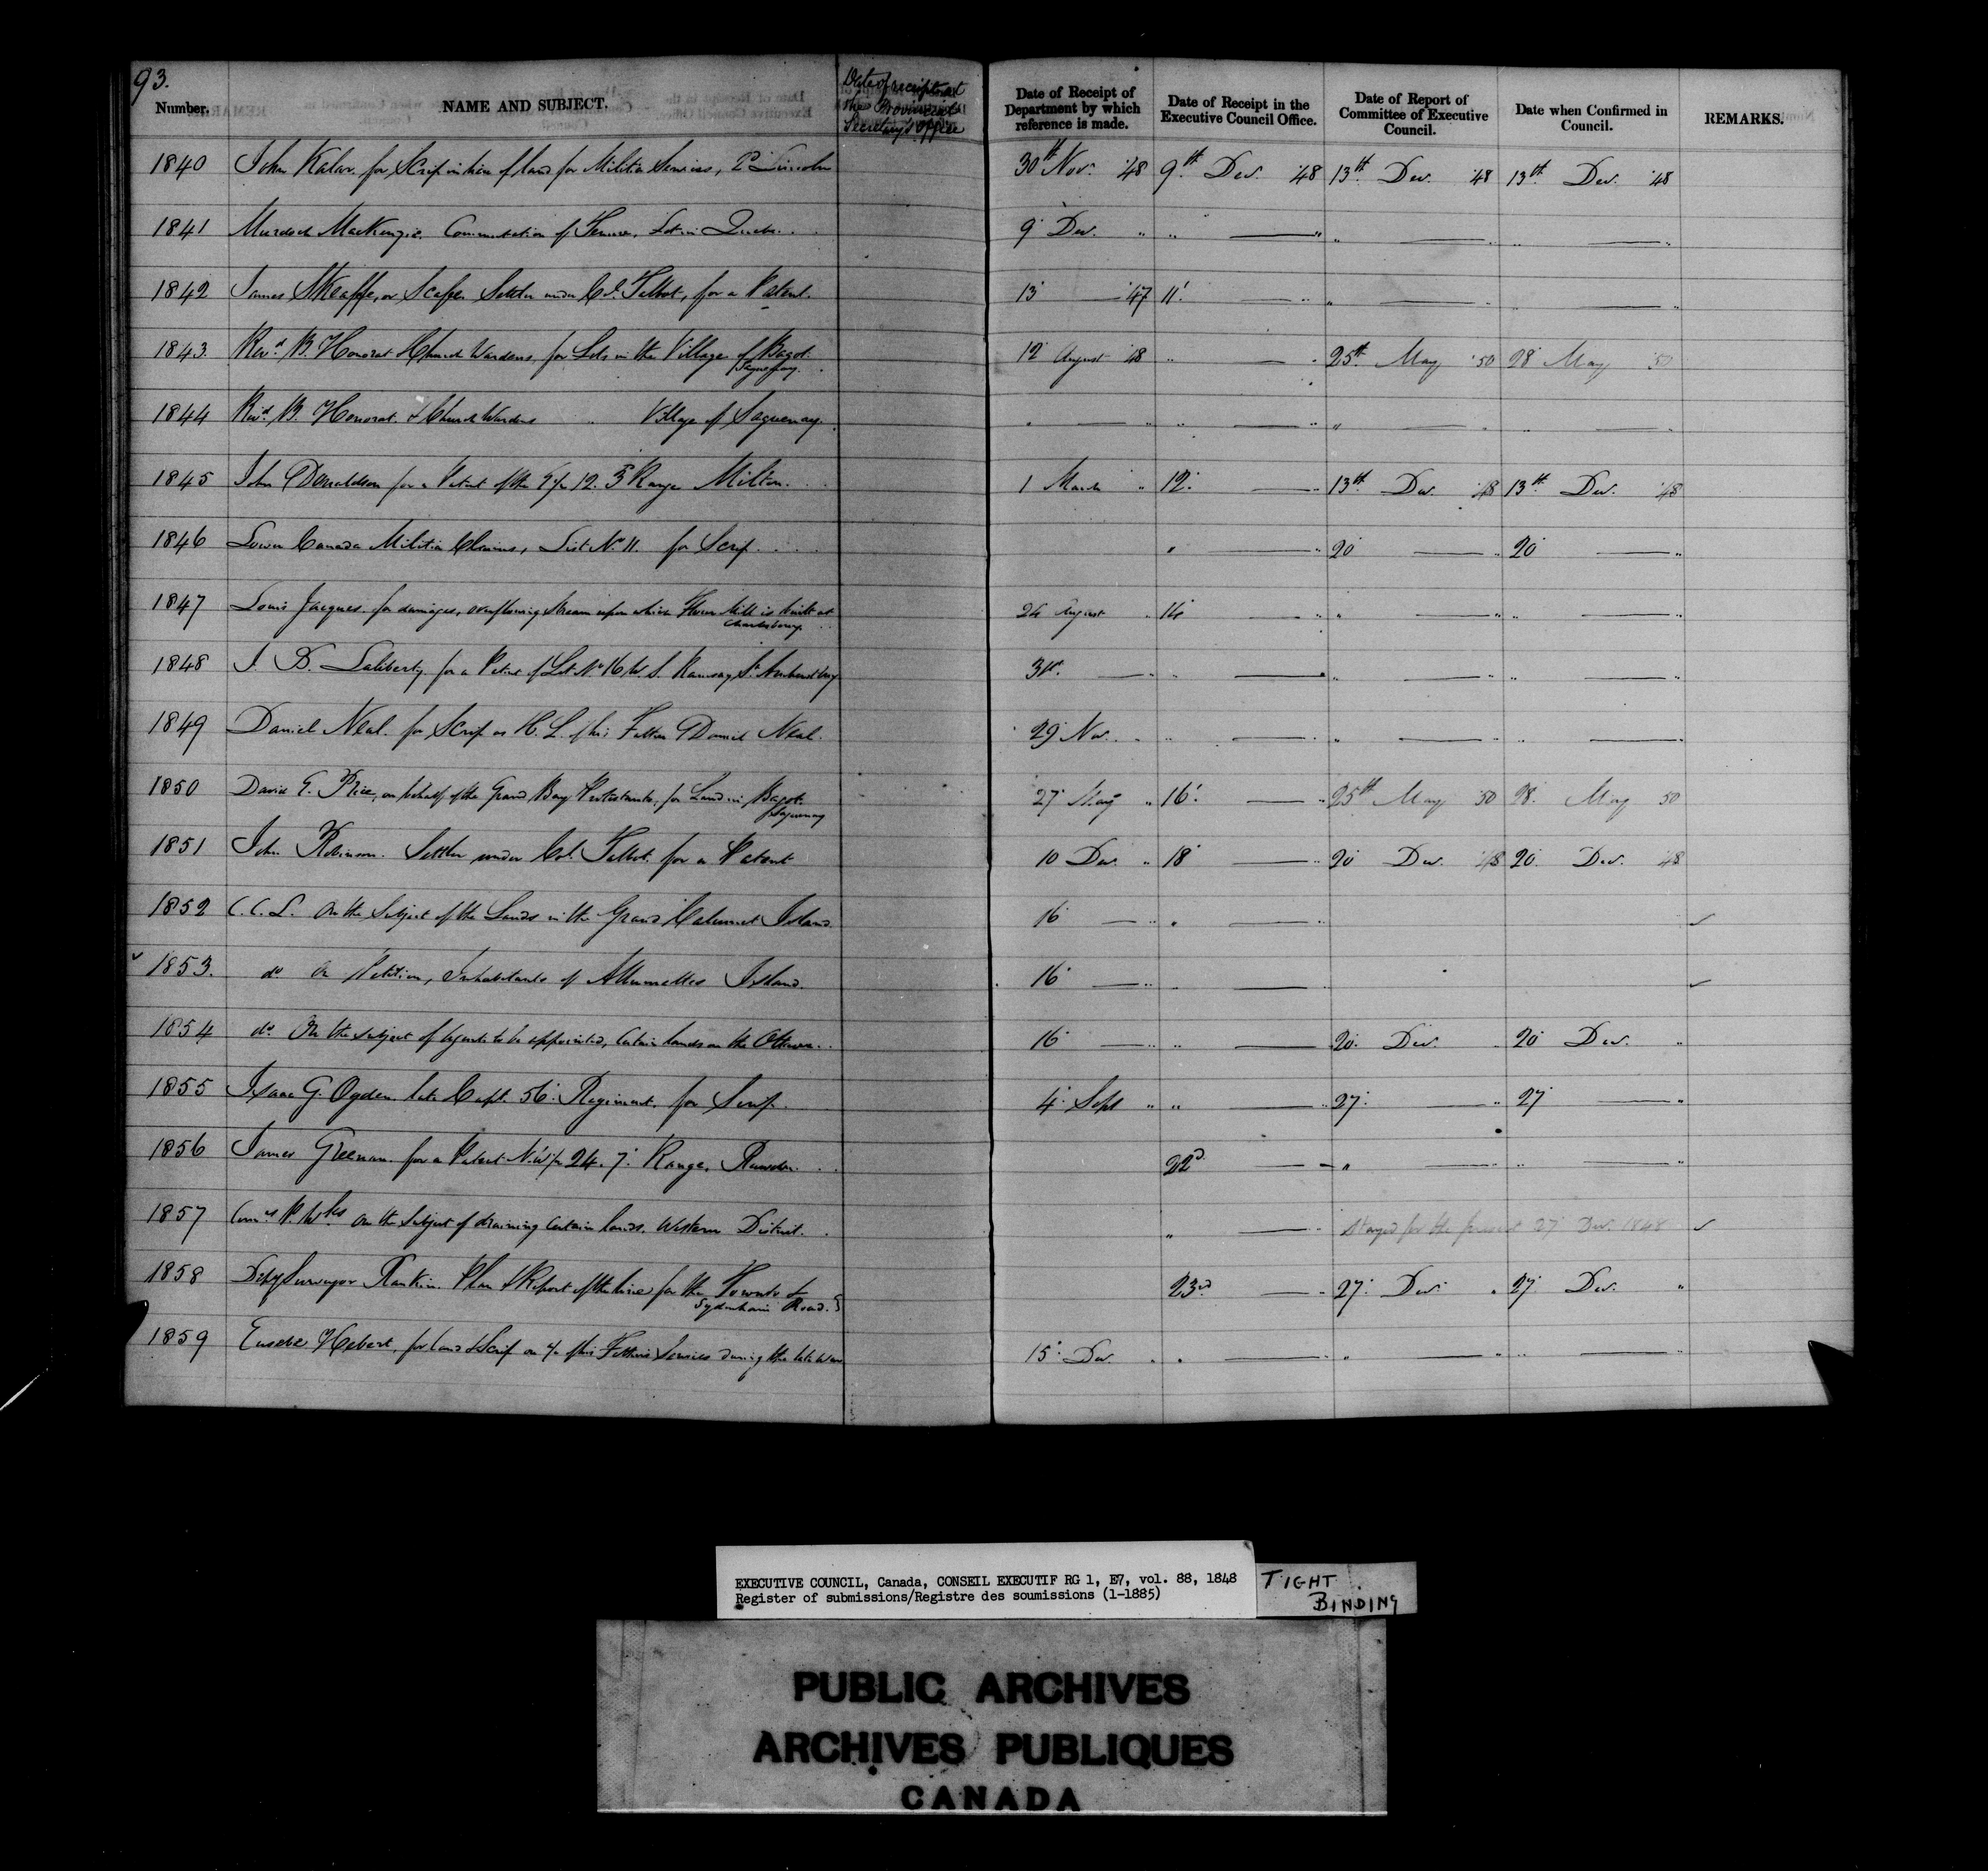 93.
Number.
NAME AND SUBJECT.
Date of receipt at the Provincial Secretary's Office
Date of Receipt of Department by which reference is made.
Date of Receipt in the Executive Council Office.
Date of Report of Committee of Executive Council.
Date when Confirmed in Council.
REMARKS.
1840 John Kalar. for Scrip in lieu of land for Militia Services, 2d Lincoln 30th Nov. '48 9th Dec. '48 13th Dec. '48 13th Dec. '48
1841 Murdoch MacKenzie. Commutation of Tenure. Lot in Quebec. 9 Dec. " " — " " — " " — "
1842 James Skeaffe, or Scafe. Settler under Col. Talbot, for a Patent. 13 — '47 11 — " " — " " — "
1843. Revd B. Honorat & Church Wardens for Lots in the Village of Bagot. Saguenay. 12 August 48 " — " 25th May '50 28 May 50
1844 Revd B. Honorat. & Church Wardens " Village of Saguenay. " — " " — " " — " " — "
1845 John Donaldson for a Patent of the 12. 3d Range Milton. 1 March " 12. — " 13th Dec. '48 13th Dec. '48
1846 Lower Canada Militia Claims, List No 11. for Scrip. " — " 20 — " 20 — "
1847 Louis Jacques. for damages, overflowing Stream upon which Flour Mill is built at Charlesbourg. 24 August " 14 — " " — " " — "
1848 J. B. Laliberty for a Patent of Lot No 16 W. S. Ramsay St. Amherstburg 31st. — " " — " " — " " — "
1849 Daniel Neal. for Scrip as H. L. of his Father Daniel Neal. 29 Nov. " " — " " — " " — "
1850 David E. Price, on behalf of the Grand Bay Protestants, for Land in Bagot. Saguenay 27 May " 16. — " 25th May '50 28. May 50
1851 John Robinson. Settler under Col. Talbot. for a Patent 10 Dec. " 18 — " 20 Dec. '48 20. Dec. '48
1852 C. C. L. On the Subject of the Lands in the Grand Calumet Island. 16 — " " — "
1853. do On Petition, Inhabitants of Allumettes Island. 16 — " " — "
1854 do On the subject of Agents to be appointed, Certain lands on the Ottawa. 16 — " " — 20. Dec. " 20 Dec. "
1855 Isaac G. Ogden late Capt. 56. Regiment. for Scrip. 4. Sept " " — " 27. — " 27 — "
1856 James Greenan. for a Patent N.W½ 24. 7. Range. Rawdon. 22d — " " — " " — "
1857 Comrs P. Wks On the Subject of draining Certain lands. Western District. " — " Stayed for the present 27 Dec. 1848
1858 Depy Surveyor Rankin. Plan & Report of the line for the Toronto & Sydenham Road. 23rd — " 27. Dec. " 27. Dec. "
1859 Eusebe Hebert, for land & Scrip on a/c of his Father's Services during the late War 15. Dec. " " — " " — " " — "
EXECUTIVE COUNCIL, Canada, CONSEIL EXECUTIF RG 1, E7, vol. 88, 1848
Register of submissions/Registre des soumissions (1-1885)
TIGHT
BINDING
PUBLIC ARCHIVES
ARCHIVES PUBLIQUES
CANADA